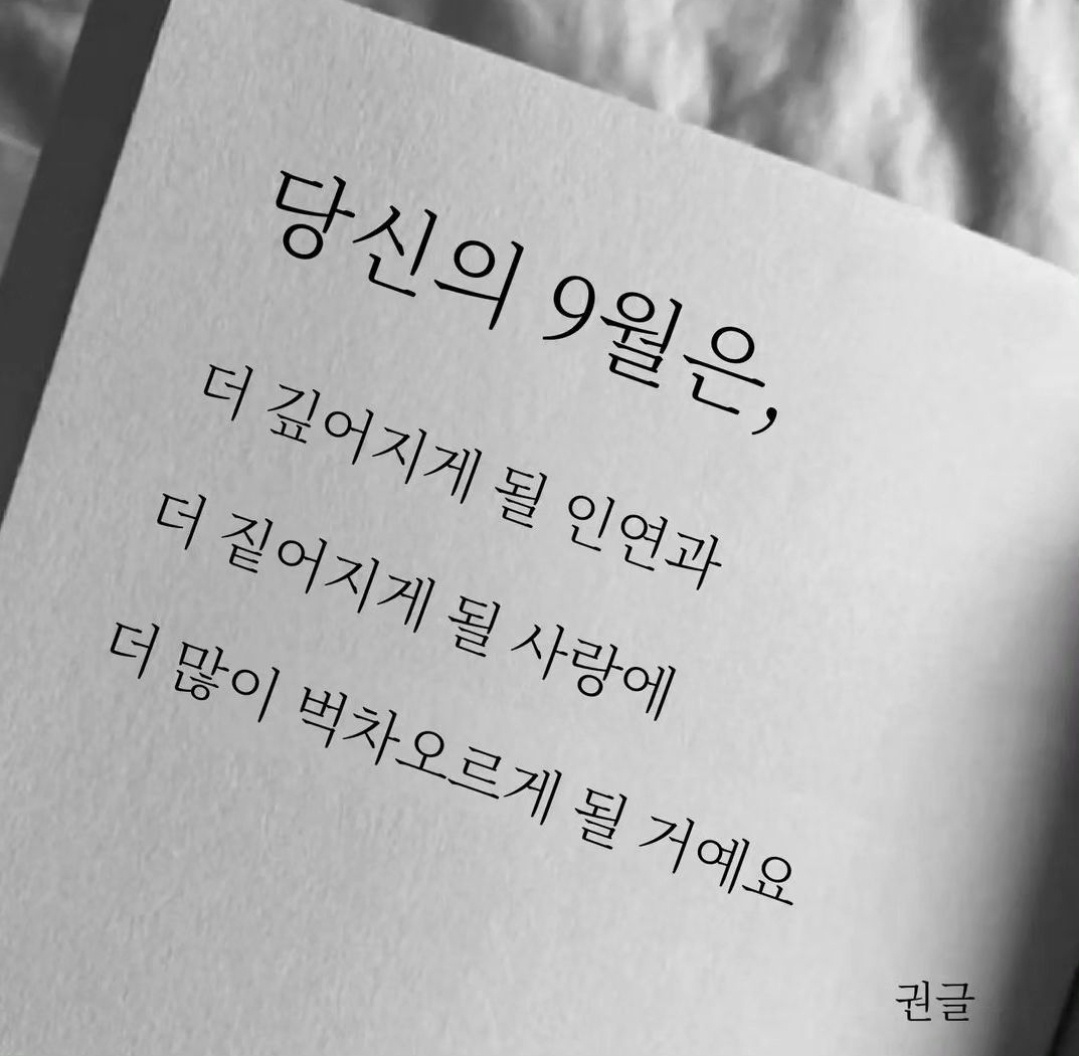 당신의 9월은,
더 깊어지게 될 인연과
더 짙어지게 될 사랑에
더 많이 벅차오르게 될 거예요
권글